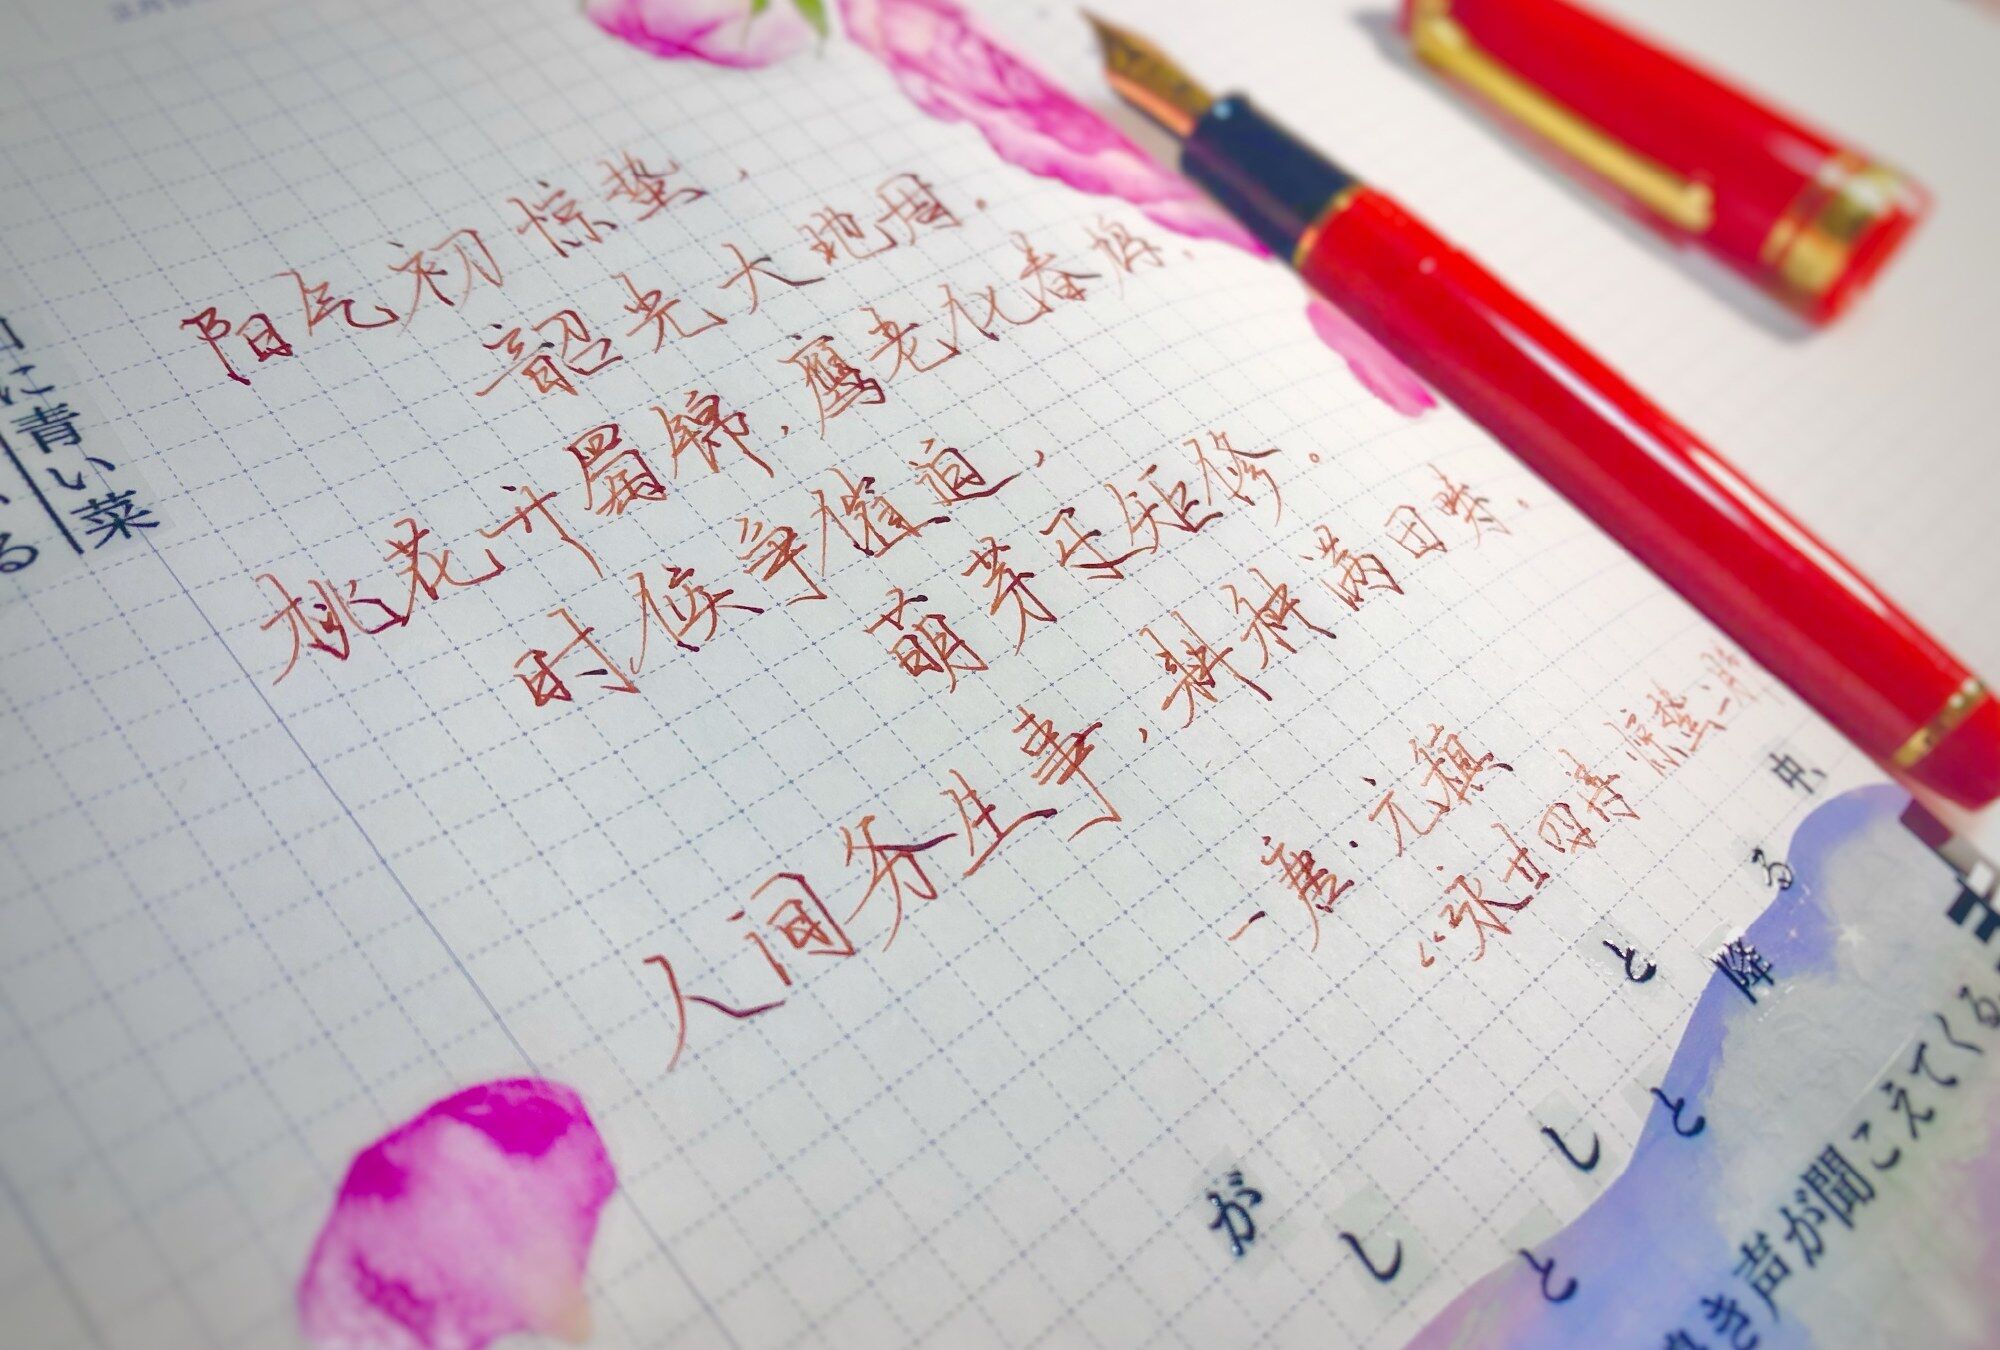 阳气初惊蛰，
韶光大地周．
桃花开蜀锦，鹰老化春鸠．
时候争催迫，
萌芽互矩修。
人间务生事，耕种满田畴．
—唐．元稹
“咏廿四诗·惊蛰二月
に青い菜
る
がしとしとと降る中
き声が聞こえてくる